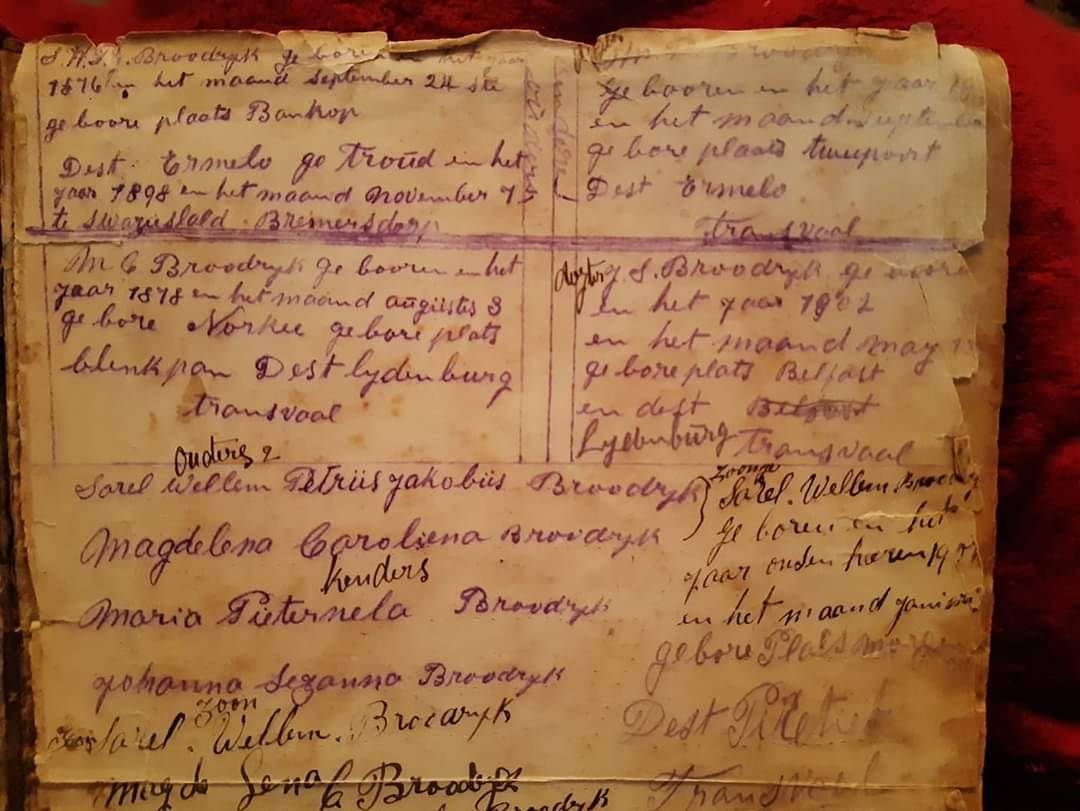 S.W.P.J. Broodryk ge boren het yaar
1876 en het maand September 24 ste
ge boore plaats Bankop
Dest. Ermelo ge troud en het
yaar 1898 en het maand november 7
te Swazieslald. Bremersdorp
ouders
kinders
Broodryk
ge booren en het yaar
en het maand September
ge bore plaats tweepoort
Dest Ermelo
Transvaal
M C Broodryk ge booren en het
yaar 1878 en het maand augustes 3
ge bore Norkee ge bore plats
blenkpan Dest lydenburg
transvaal
dogter J. S. Broodryk ge boore
en het yaar 1902
en het maand may
ge bore plats Belfast
en dest Belfast
Lydenburg Transvaal
Ouders 2
Sarel Wellem Petrus Jakobus Broodryk
Magdelena Caroliena Broodryk
kenders
Maria Pieternela Broodryk
Johanna Sezanna Broodryk
zoon
Sarel. Wellem. Broodryk
Magdelena C Broodryk
zoontje
Sarel. Wellem Broodryk
ge boren en het
yaar
en het maand
gebore Plats
Dest Piketiet
Transvaal